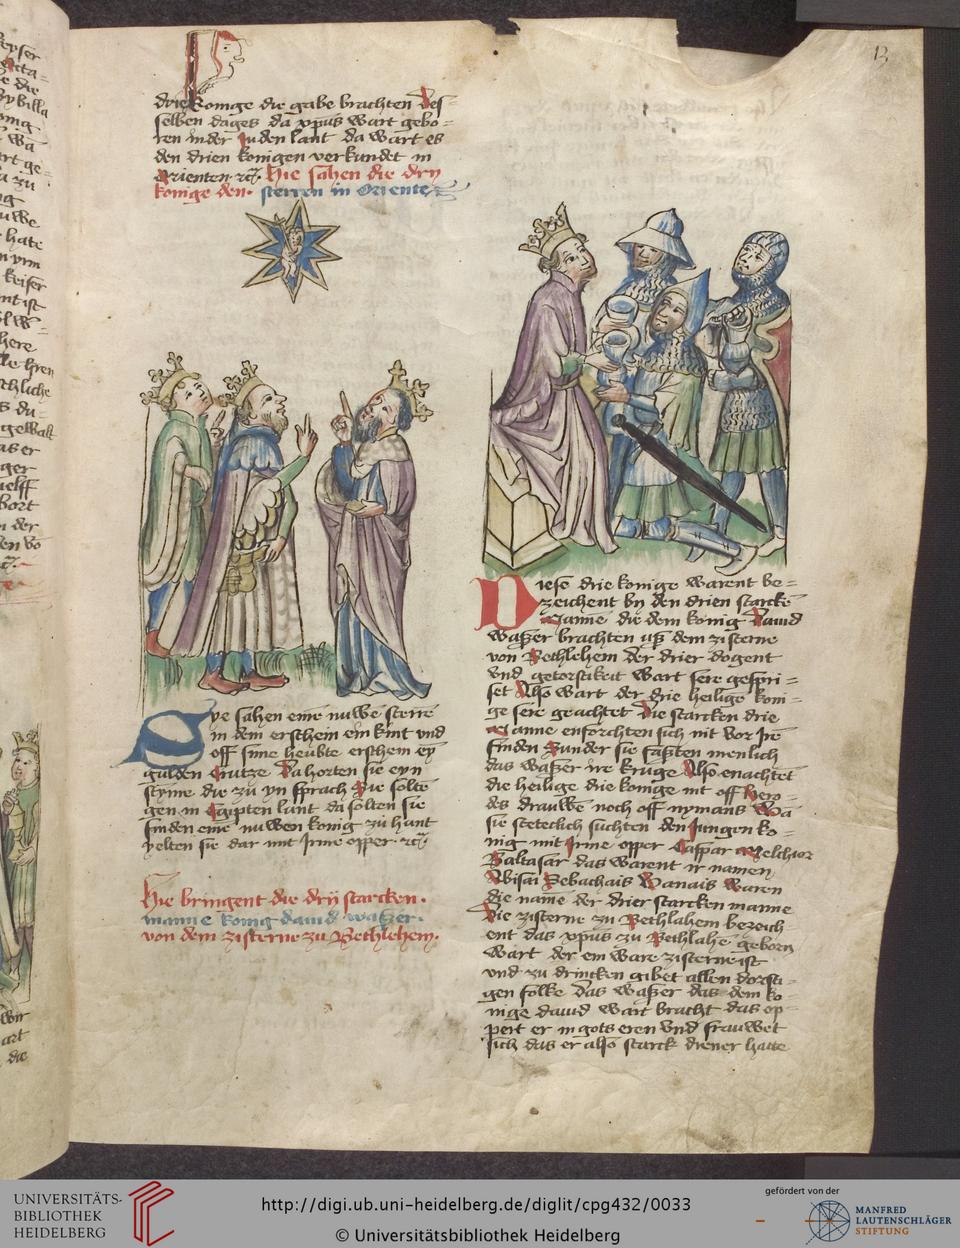 drie konige die gabe brachten des=
selben dages da xpus wart gebo=
ren in der Juden lant da wart es
den drien konigen verkundet in
Orienten rc Hie sahen die dry
konige den sterren in Oriente
Sye sahen eine nuwe sterre
in dem erschein ein kint und
off sine heubte erschein ey
gulden Crutze Da horten sie eyn
styme die zu yn sprach Sie solte
gen in Egipten lant da solten sie
finden eine nuwen konig zu hant
ylten sie dar mit Irme opper rc
Hie bringent die drij starcken
manne konig dauid waszer
von dem zisterne zu Bethlehem
13
Diese drie konige warent be=
zeichent by den drien starcke
Manne die dem konig Dauid
waszer brachten usz dem zisterne
von Bethlehem der drier dogent
vnd getorstikeit wart sere gepri=
set Also wart der drie heilige koni=
ge sere geachtet Die starcken drie
Manne enforchten sich nit vor Ire
finden Sunder sie faszten menlich
das waszer ire kruge Also enachtet
die heilige die konige nit off Hero=
des drauwe noch off nymans Wa
sie steteclich suchten den Jungen ko=
nig mit Irme opper Caspar Melchior
Baltasar das warent ir namen
Abisai Sebachais Banais Waren
die name der drier starcken manne
Die zisterne zu Bethlahem bezeich=
ent das xpus zu Bethlahe geborn
wart der ein ware zisterne ist
vnd zu drincken gibet allen dorsti=
gen folke Das waszer das dem ko=
nige dauid wart bracht das op=
pert er in gots eren Vnd frauwet
sich das er also starck diener hatte
UNIVERSITÄTS-
BIBLIOTHEK
HEIDELBERG
http://digi.ub.uni-heidelberg.de/diglit/cpg432/0033
© Universitätsbibliothek Heidelberg
gefördert von der
MANFRED
LAUTENSCHLÄGER
STIFTUNG